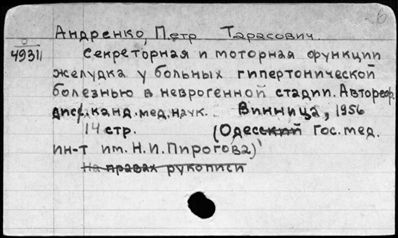 Андренко, Петр Тарасович.
49311
Секреторная и моторная функции
желудка у больных гипертонической
болезнью в неврогенной стадии. Автореф.
дисс. канд. мед. наук. Винница, 1956
14 стр. (Одесский Гос. мед.
ин-т им. Н.И. Пирогова)
На правах рукописи